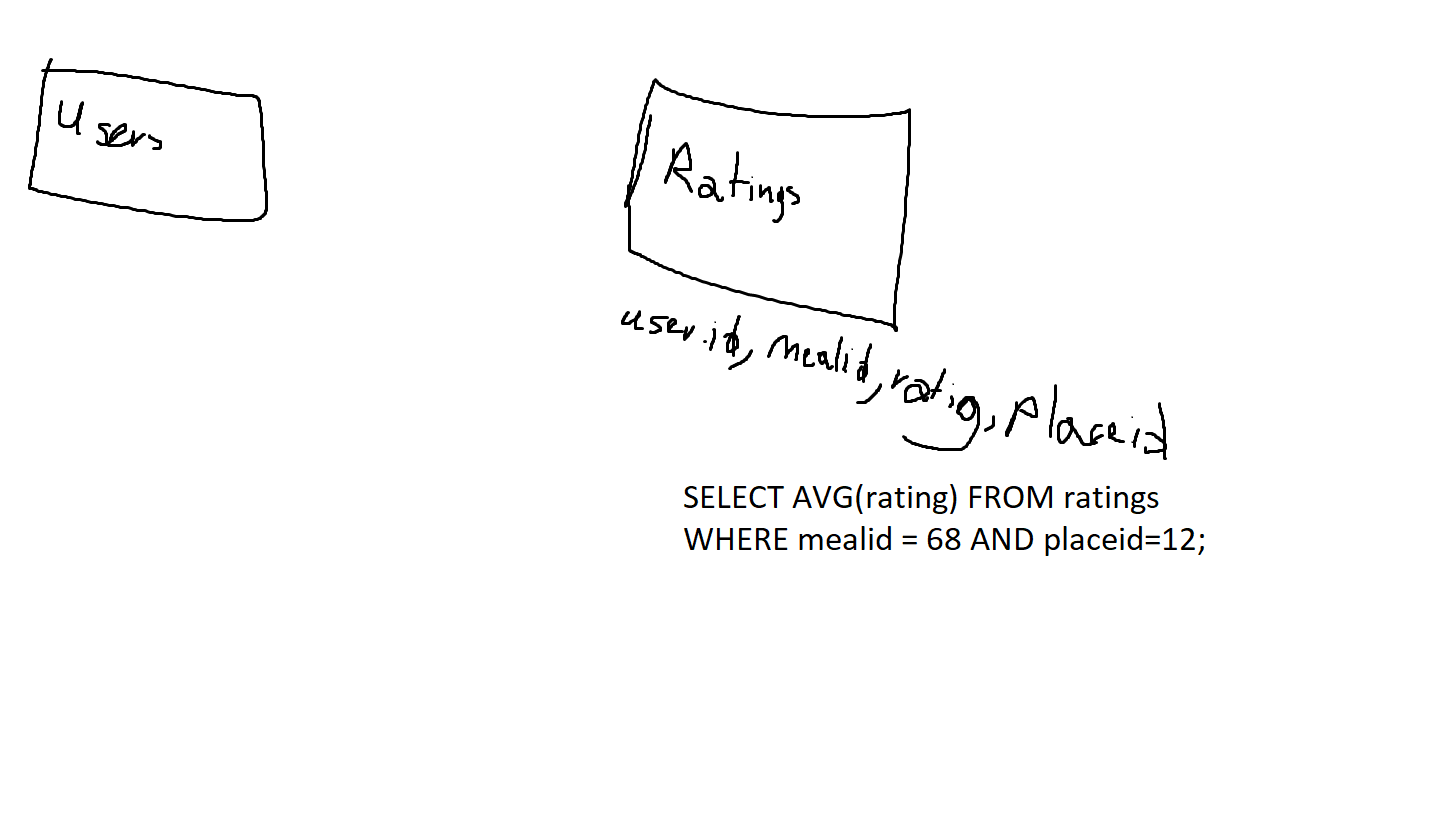 Users
Ratings
user.id, mealid, ratig, placeid
SELECT AVG(rating) FROM ratings
WHERE mealid = 68 AND placeid=12;